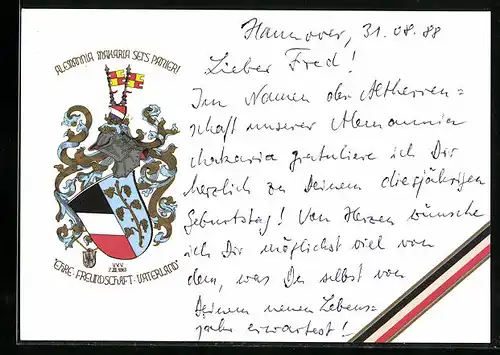 Hannover, 31.08.88
ALEMANNIA MAKARIA SEI'S PANIER!
Lieber Fred!
Im Namen der Altherren=
schaft unserer Alemannia
Makaria gratuliere ich Dir
herzlich zu Deinem diesjährigen
Geburtstag! Von Herzen wünsche
ich Dir möglichst viel von
dem, was Du selbst von
Deinem neuen Lebens=
jahr erwartest!
EHRE·FREUNDSCHAFT·VATERLAND